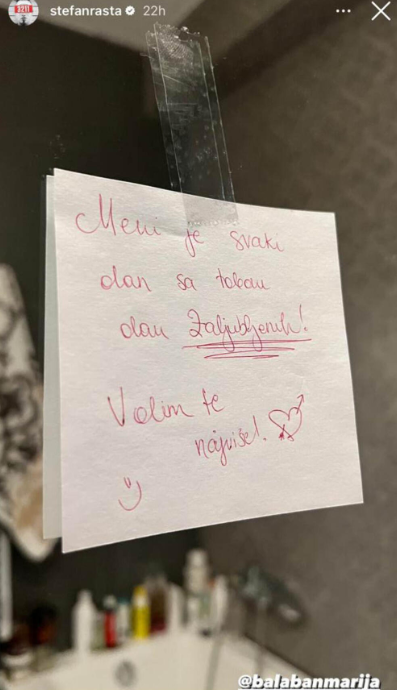 stefanrasta 22h
Meni je svaki
dan sa tobom
dan Zaljubljenih!
Volim te
najviše!
@balabanmarija